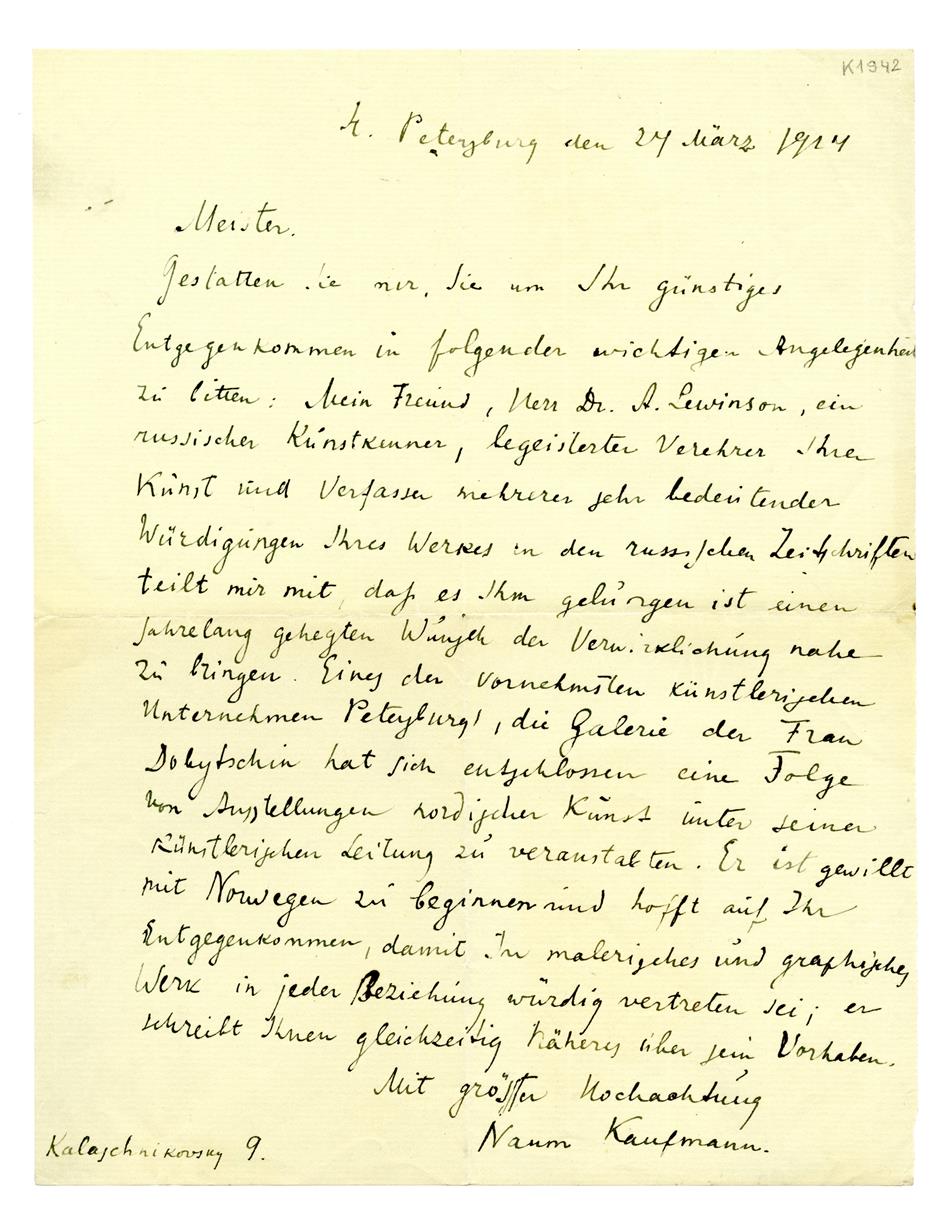 K1942
St. Petersburg den 27 März 1914
Meister.
Gestatten Sie mir, Sie um Ihr günstiges
Entgegenkommen in folgender wichtigen Angelegenheit
zu bitten: Mein Freund, Herr Dr. A. Lewinson, ein
russischer Kunstkenner, begeisterter Verehrer Ihrer
Kunst und Verfasser mehrerer sehr bedeutender
Würdigungen Ihres Werkes in den russischen Zeitschriften
teilt mir mit, daß es Ihm gelungen ist einen
jahrelang gehegten Wunsch der Verwirklichung nahe
zu bringen. Eines der vornehmsten künstlerischen
Unternehmen Petersburgs, die Galerie der Frau
Dobytschin hat sich entschlossen eine Folge
von Ausstellungen nordischer Kunst unter seiner
künstlerischen Leitung zu veranstalten. Er ist gewillt
mit Norwegen zu beginnen und hofft auf Ihr
Entgegenkommen, damit Ihr malerisches und graphisches
Werk in jeder Beziehung würdig vertreten sei; er
schreibt Ihnen gleichzeitig Näheres über sein Vorhaben.
Mit größter Hochachtung
Naum Kaufmann.
Kalaschnikovsky 9.